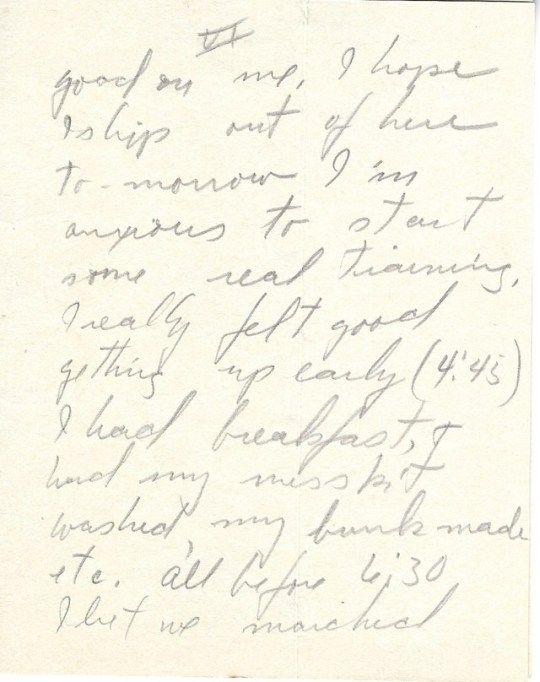 VI
good on me, I hope
I ship out of here
to-morrow I'm
anxious to start
some real training,
I really felt good
getting up early (4:45)
I had breakfast, I
had my mess kit
washed, my bunk made
etc. all before 6:30
I bet we marched